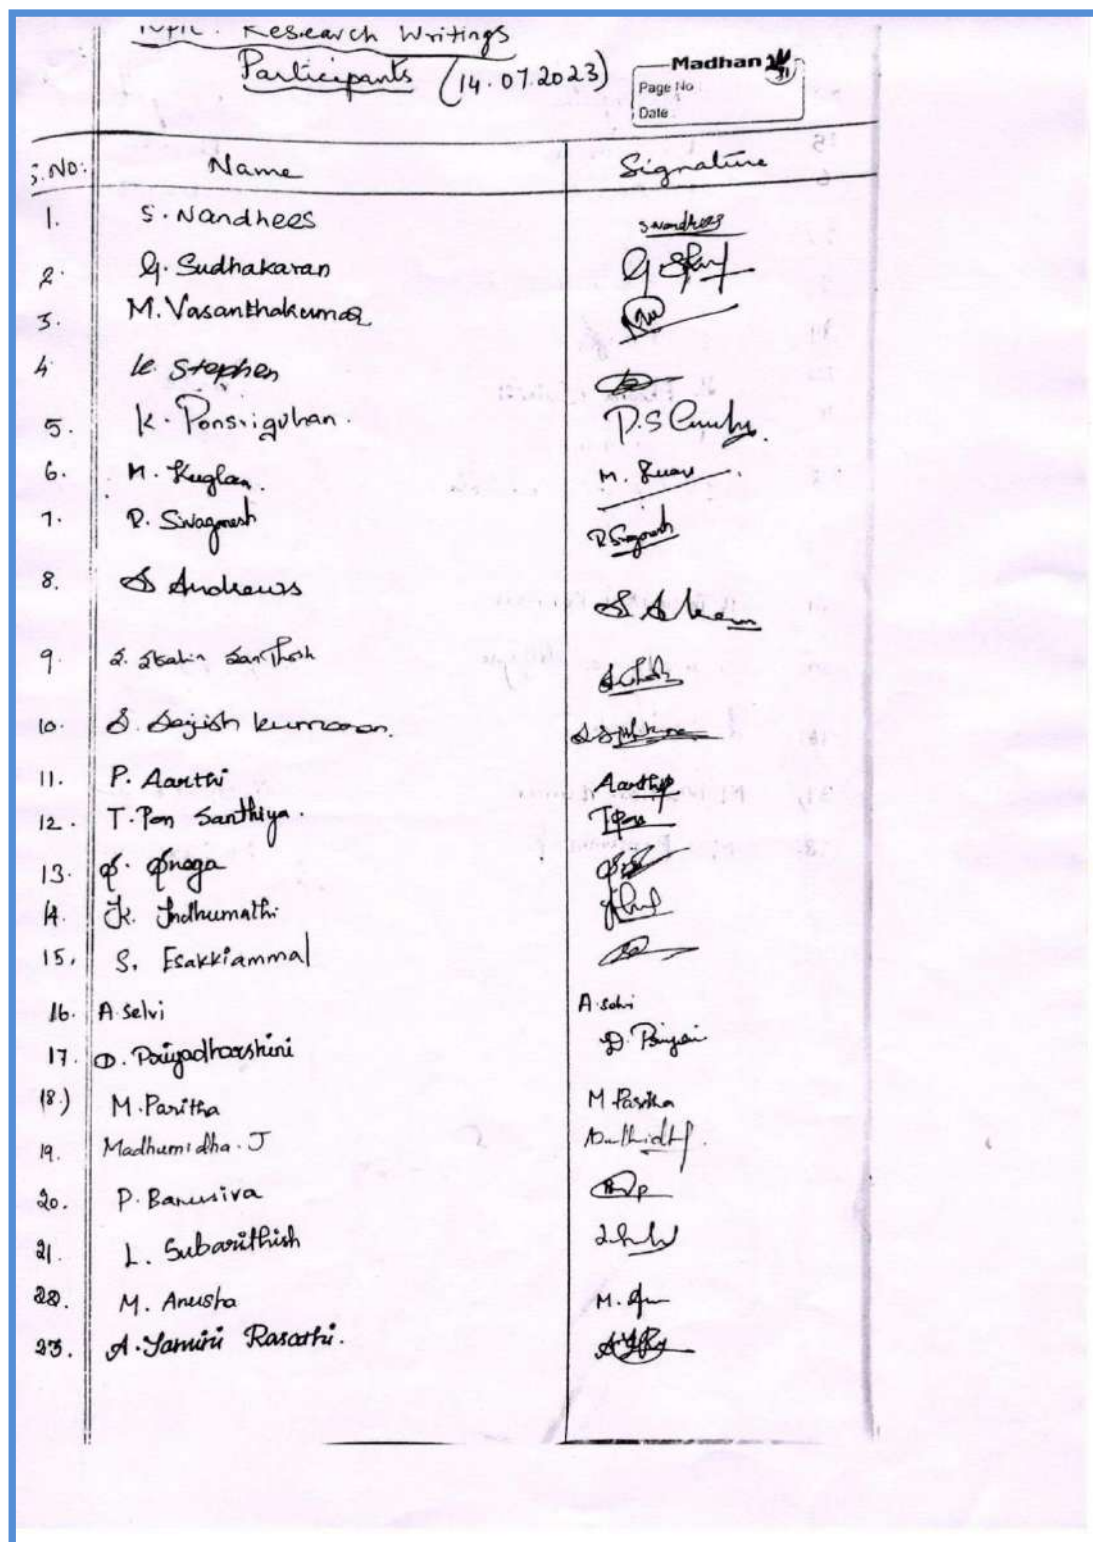 Topic: Research Writings
Participants (14.07.2023)
Madhan
Page No
Date
S.No: Name Signature
1. S. Nandhees S Nandhees
2. G. Sudhakaran G
3. M. Vasanthakumar
4. K. Stephen
5. K. Ponsriguhan.
6. M. Kuglan. M.
7. R. Sivaganesh
8. S Andrews S
9. S. Stalin Santhosh
10. S. Sajish kumaran.
11. P. Aarthi Aarthi P
12. T. Pon Santhiya.
13.
14. K. Indhumathi
15. S. Esakkiammal
16. A. selvi A. selvi
17. D. Paiyadharshini D.
18.) M. Paritha M Paritha
19. Madhumidha. J
20. P. Banusiva
21. L. Subarithish
22. M. Anusha M.
23. A. Yamini Rasathi.